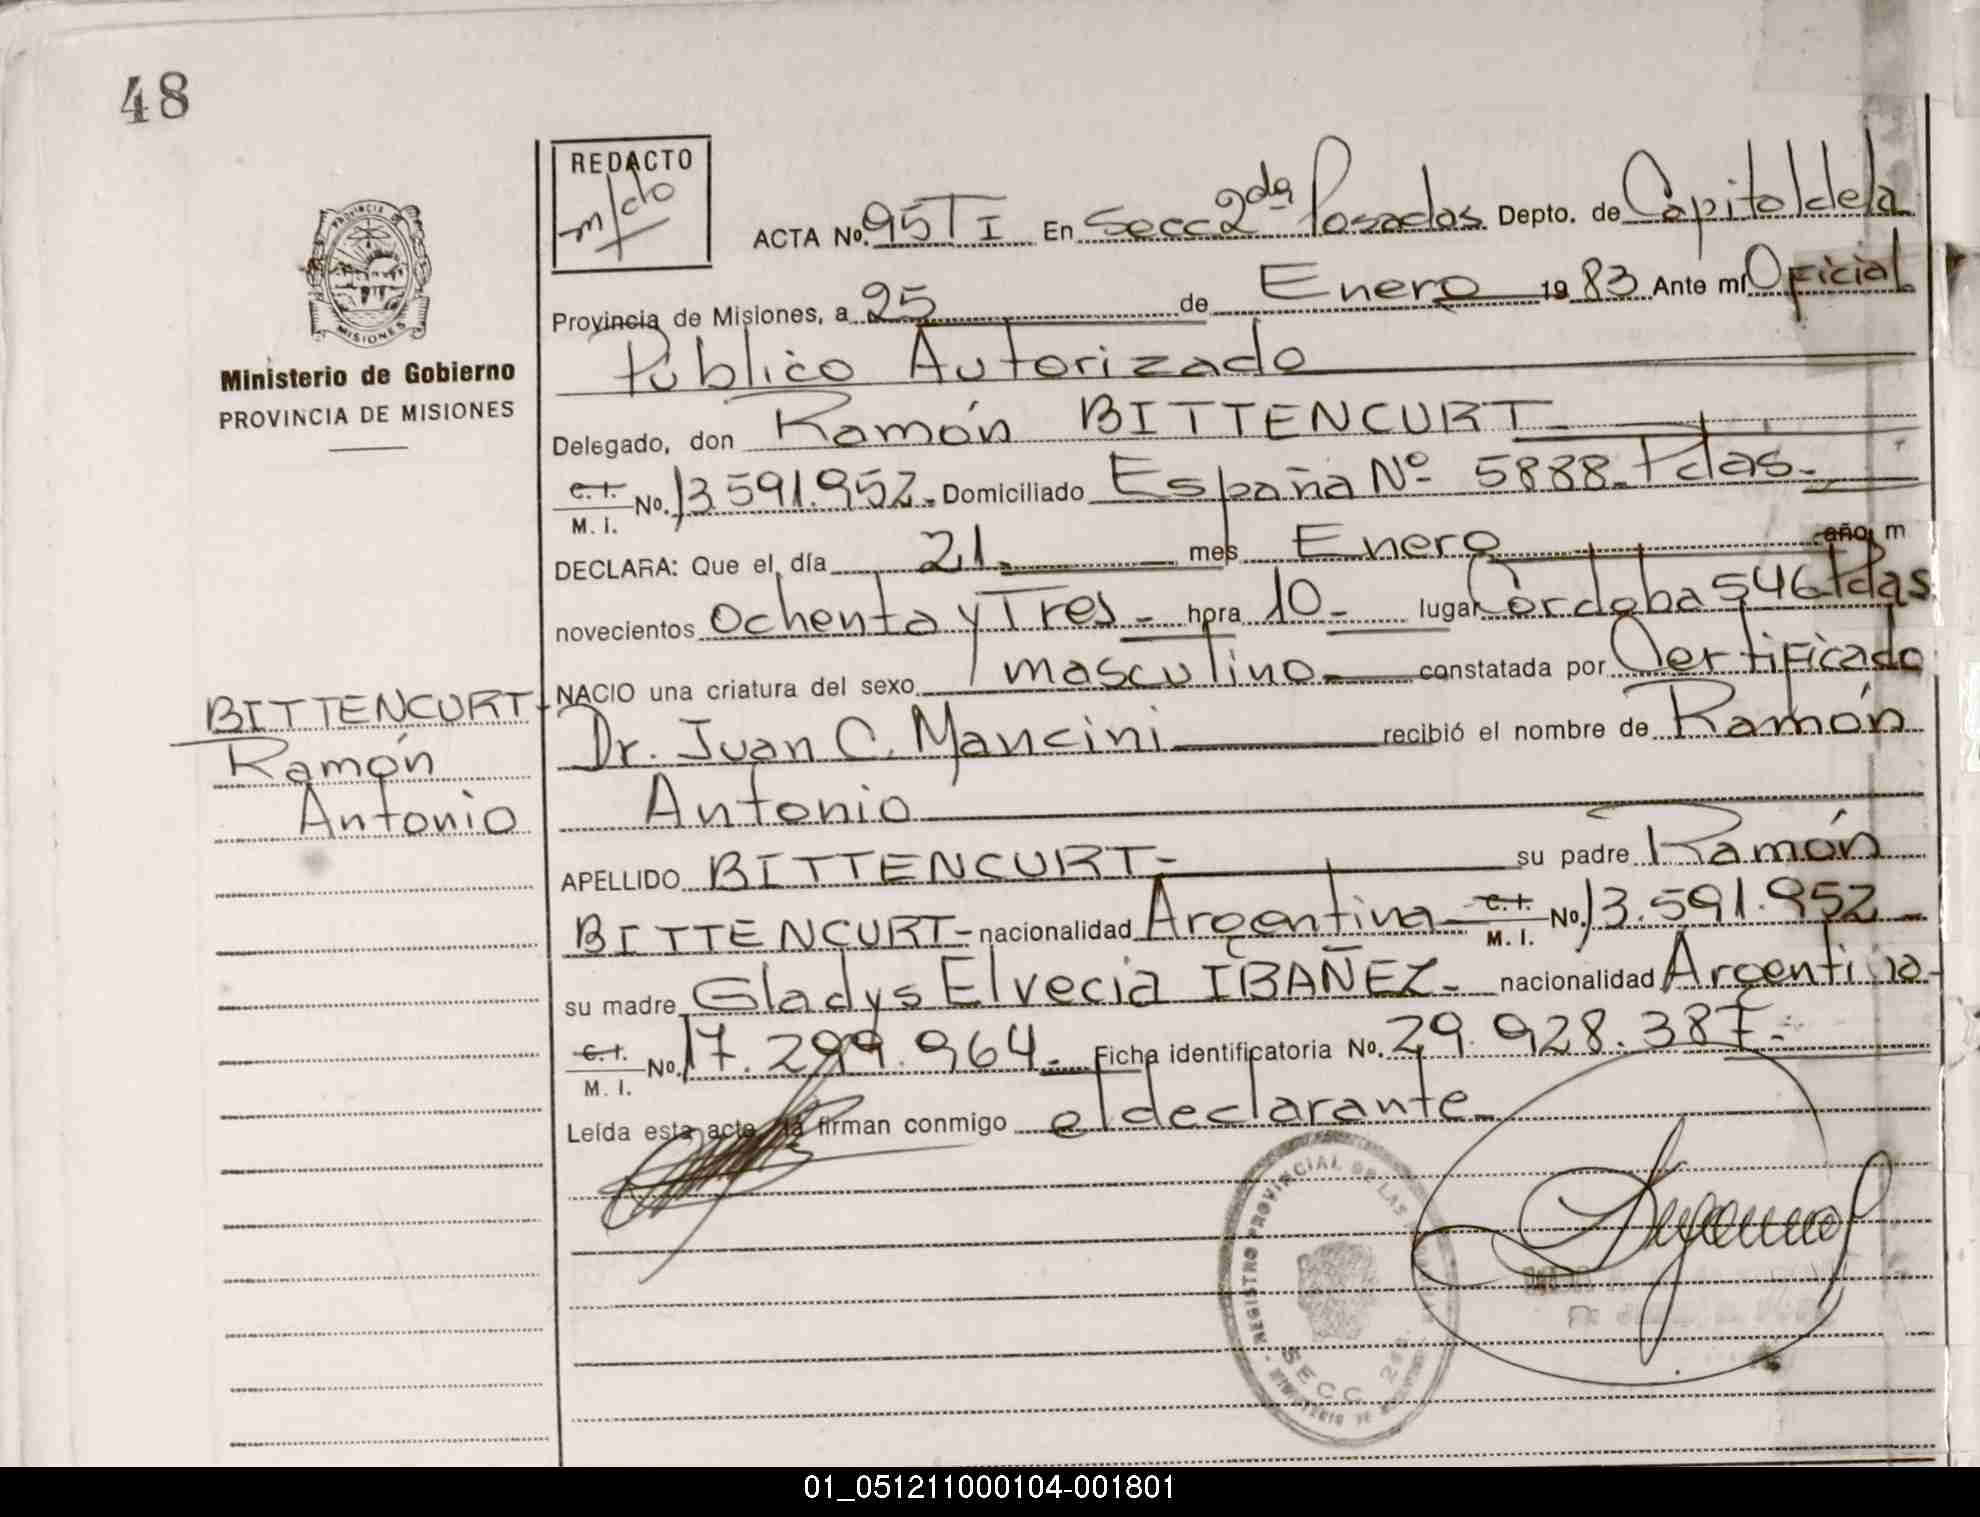 48
REDACTO
m/do
ACTA No. 95 T I En Secc 2da Posadas Depto. de Capital de la
Provincia de Misiones, a 25 de Enero 1983 Ante mí Oficial
Público Autorizado
PROVINCIA DE MISIONES
Ministerio de Gobierno
PROVINCIA DE MISIONES
Delegado, don Ramón BITTENCURT
C. I. M. I. No. 13.591.952.- Domiciliado España Nº 5888- Pdas.-
DECLARA: Que el día 21.- mes Enero año m
novecientos ochenta y Tres - hora 10 - lugar Cordoba 546 Pdas
NACIO una criatura del sexo masculino - constatada por Certificado
BITTENCURT
Ramón
Antonio
Dr. Juan C. Mancini recibió el nombre de Ramón
Antonio
APELLIDO BITTENCURT - su padre Ramón
BITTENCURT - nacionalidad Argentina - C. I. M. I. No. 13.591.952 -
su madre Gladys Elvecia IBAÑEZ - nacionalidad Argentina -
C. I. M. I. No. 17.299.964.- Ficha identificatoria No. 29.928.387.-
Leída esta acta la firman conmigo el declarante -
REGISTRO PROVINCIAL DE LAS
SECC. 2da.
01_051211000104-001801